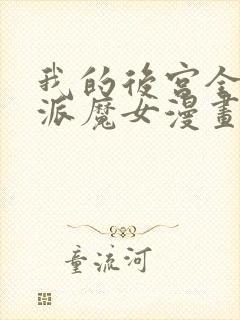 我的後宮全
派魔女漫畫
童流河